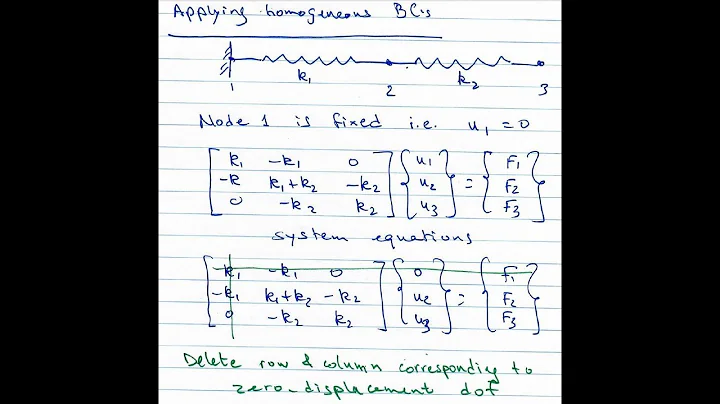 Applying homogeneous BC's
k₁ k₂
1 2 3
Node 1 is fixed i.e. u₁ = 0
[ k₁ -k₁ 0 ] { u₁ } = { F₁ }
[ -k k₁+k₂ -k₂ ] { u₂ } = { F₂ }
[ 0 -k₂ k₂ ] { u₃ } = { F₃ }
system equations
[ -k₁ -k₁ 0 ] { 0 } = { F₁ }
[ -k₁ k₁+k₂ -k₂ ] { u₂ } = { F₂ }
[ 0 -k₂ k₂ ] { u₃ } = { F₃ }
Delete row & column corresponding to
zero-displacement dof